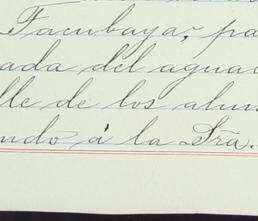 Tambaya, pa
ada del aguac
lle de los alum
ndo á la Sra.